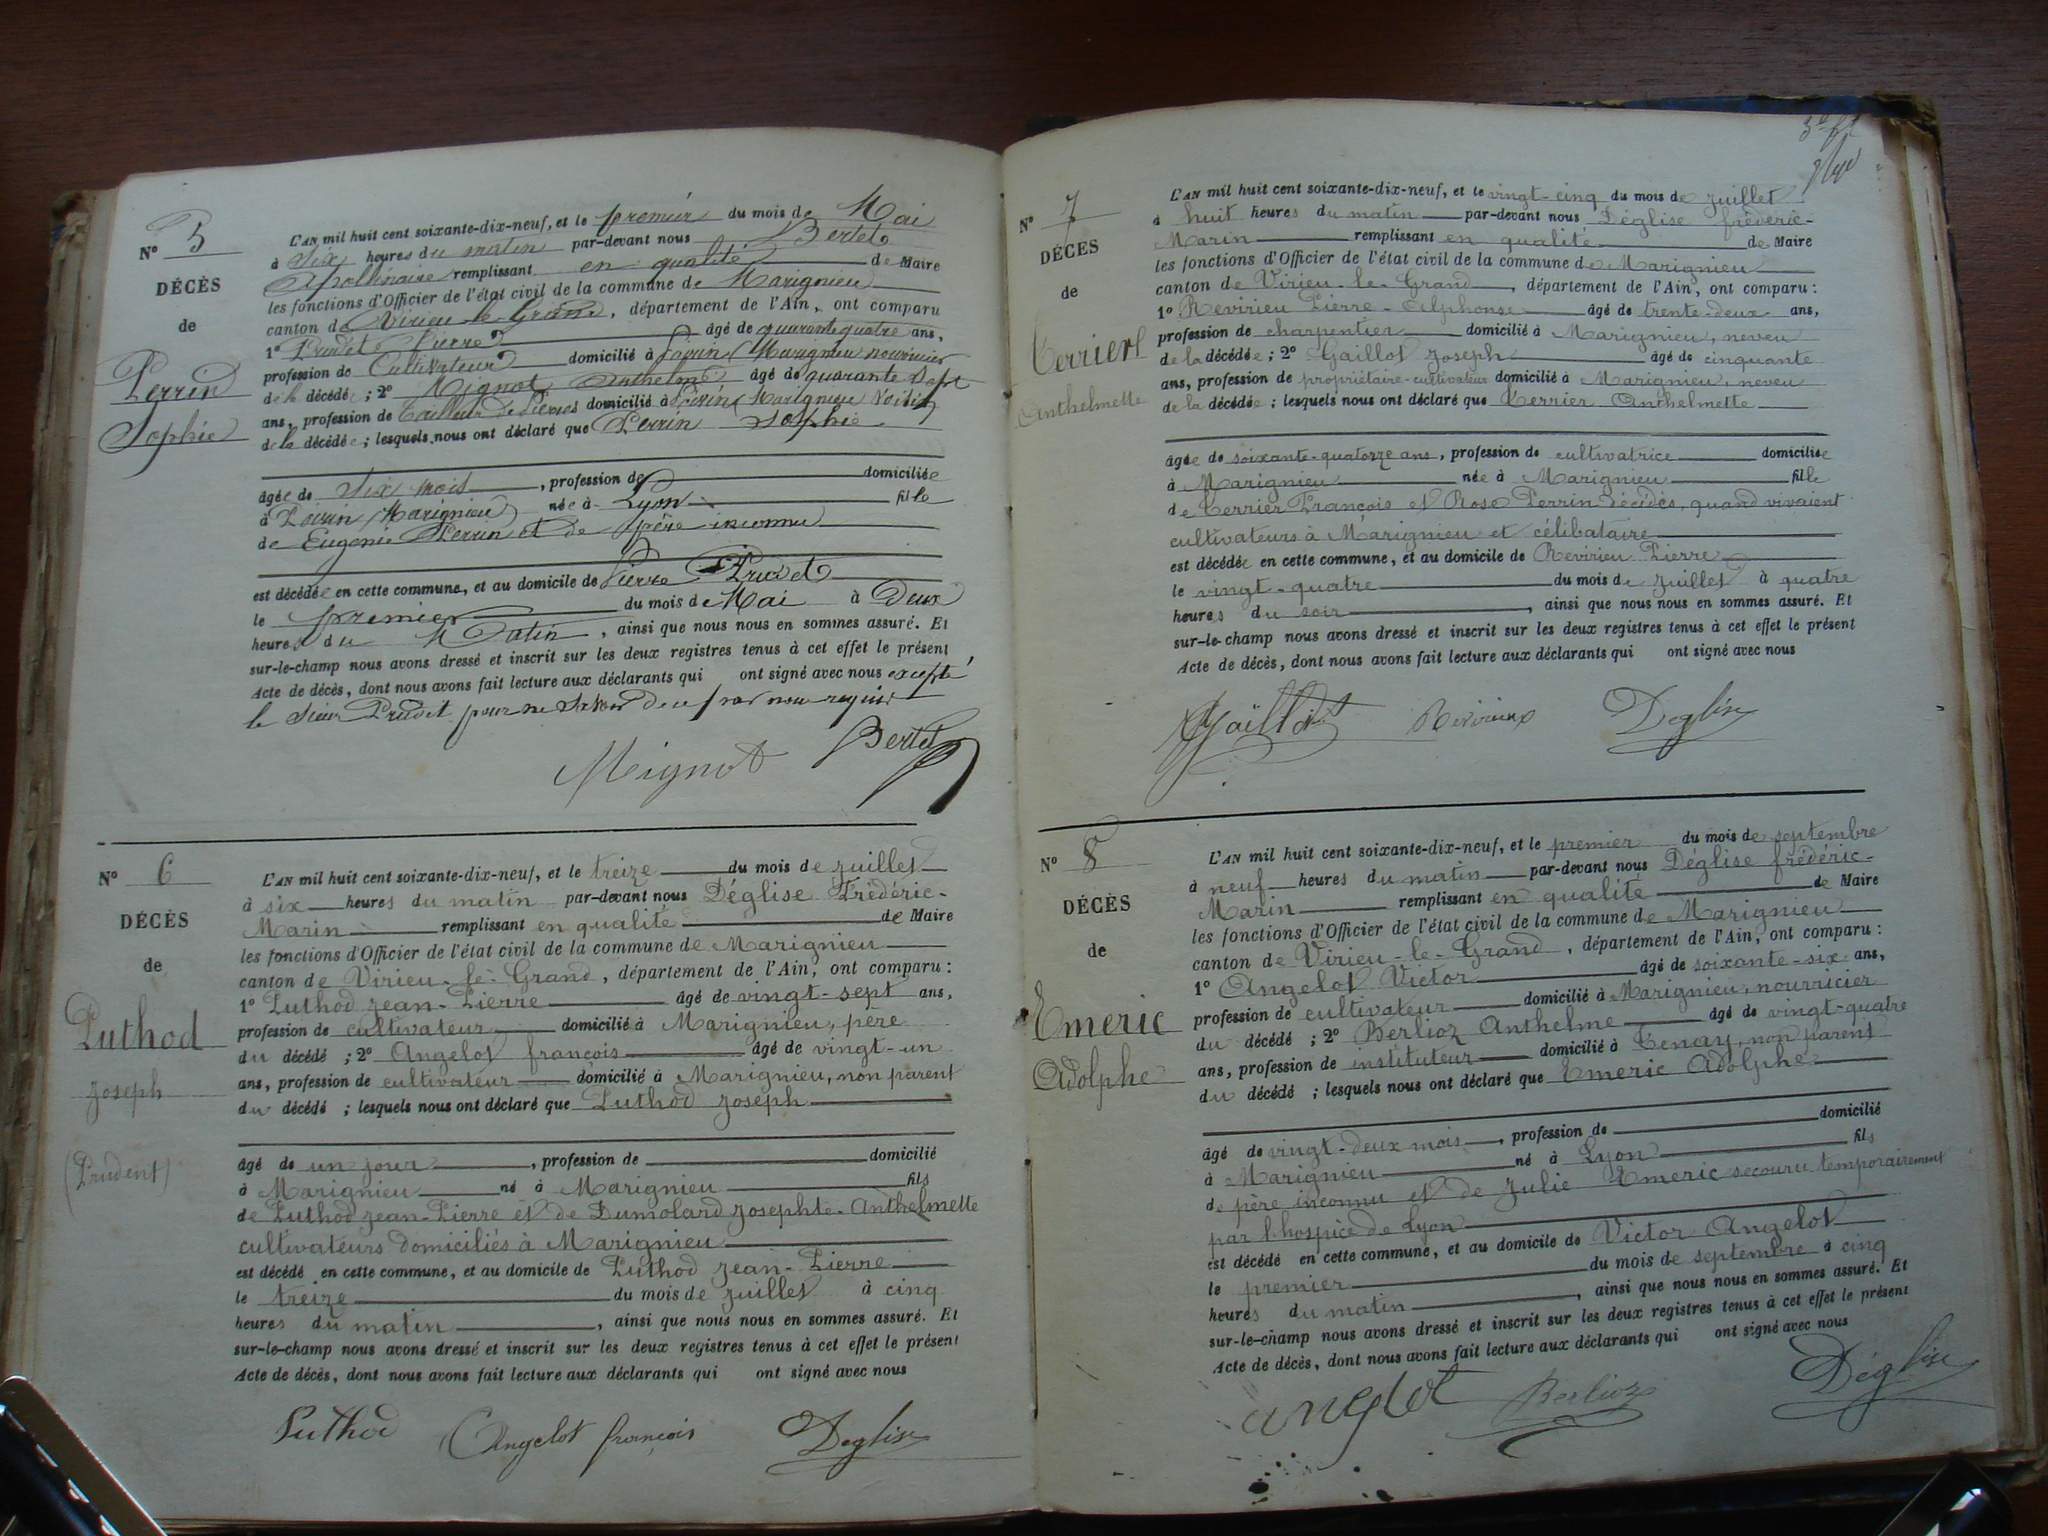 N° 5
DÉCÈS
de
Perrin
Sophie
L'AN mil huit cent soixante-dix-neuf, et le premier du mois de Mai
à Six heures du matin par-devant nous Bertet
Apollinaire remplissant en qualité de Maire
les fonctions d'Officier de l'état civil de la commune de Marignieu
canton de Virieu-le-Grand, département de l'Ain, ont comparu
1° Prudet Pierre âgé de quarante quatre ans,
profession de Cultivateur domicilié à (Marignieu nourricier
de la décédée ; 2° Mignot Anthelme âgé de quarante Sept
ans, profession de Tailleur de Pierres domicilié à (Marignieu Voisin
de la décédée ; lesquels nous ont déclaré que Perrin Sophie
âgée de Six mois, profession de domiciliée
à (Marignieu) née à Lyon fille
de Eugenie Perrin et de père inconnu
est décédée en cette commune, et au domicile de Pierre Prudet
le premier du mois de Mai à Deux
heures du Matin, ainsi que nous nous en sommes assuré. Et
sur-le-champ nous avons dressé et inscrit sur les deux registres tenus à cet effet le présent
Acte de décès, dont nous avons fait lecture aux déclarants qui ont signé avec nous excepté
le Sieur Prudet pour ne savoir de ce par nous requis
Mignot Bertet
N° 6
DÉCÈS
de
Luthod
Joseph
(Prudent)
L'AN mil huit cent soixante-dix-neuf, et le treize du mois de juillet
à six heures du matin par-devant nous Déglise Frédéric-
Marin remplissant en qualité de Maire
les fonctions d'Officier de l'état civil de la commune de Marignieu
canton de Virieu-le-Grand, département de l'Ain, ont comparu :
1° Luthod Jean-Pierre âgé de vingt-sept ans,
profession de cultivateur domicilié à Marignieu, père
du décédé ; 2° Angelot françois âgé de vingt-un
ans, profession de cultivateur domicilié à Marignieu, non parent
du décédé ; lesquels nous ont déclaré que Luthod Joseph
âgé de un jour, profession de domicilié
à Marignieu né à Marignieu fils
de Luthod Jean-Pierre et de Dumolard Josephte-Anthelmette
cultivateurs domiciliés à Marignieu
est décédé en cette commune, et au domicile de Luthod Jean-Pierre
le treize du mois de juillet à cinq
heures du matin, ainsi que nous nous en sommes assuré. Et
sur-le-champ nous avons dressé et inscrit sur les deux registres tenus à cet effet le présent
Acte de décès, dont nous avons fait lecture aux déclarants qui ont signé avec nous
Luthod Angelot françois Déglise
N° 7
DÉCÈS
de
Terrier
Anthelmette
L'AN mil huit cent soixante-dix-neuf, et le vingt-cinq du mois de juillet
à huit heures du matin par-devant nous Déglise fréderic-
Marin remplissant en qualité de Maire
les fonctions d'Officier de l'état civil de la commune de Marignieu
canton de Virieu-le-Grand, département de l'Ain, ont comparu :
1° Revirieu Pierre-Alphonse âgé de trente-deux ans,
profession de charpentier domicilié à Marignieu, neveu
de la décédée ; 2° Gaillot Joseph âgé de cinquante
ans, profession de propriétaire-cultivateur domicilié à Marignieu, neveu
de la décédée ; lesquels nous ont déclaré que Terrier Anthelmette
âgée de soixante-quatorze ans, profession de cultivatrice domiciliée
à Marignieu née à Marignieu fille
de Terrier François et Rose Perrin décédés, quand vivaient
cultivateurs à Marignieu et célibataire
est décédée en cette commune, et au domicile de Revirieu Pierre
le vingt-quatre du mois de juillet à quatre
heures du soir, ainsi que nous nous en sommes assuré. Et
sur-le-champ nous avons dressé et inscrit sur les deux registres tenus à cet effet le présent
Acte de décès, dont nous avons fait lecture aux déclarants qui ont signé avec nous
Gaillot Revirieux Déglise
N° 8
DÉCÈS
de
Emeric
Adolphe
L'AN mil huit cent soixante-dix-neuf, et le premier du mois de septembre
à neuf heures du matin par-devant nous Déglise frédéric-
Marin remplissant en qualité de Maire
les fonctions d'Officier de l'état civil de la commune de Marignieu
canton de Virieu-le-Grand, département de l'Ain, ont comparu :
1° Angelot Victor âgé de soixante-six ans,
profession de cultivateur domicilié à Marignieu, nourricier
du décédé ; 2° Berlioz Anthelme âgé de vingt-quatre
ans, profession de instituteur domicilié à Tenay, non parent
du décédé ; lesquels nous ont déclaré que Emeric Adolphe
âgé de vingt-deux mois, profession de domicilié
à Marignieu né à Lyon fils
de père inconnu et de Julie Emeric secouru temporairement
par l'hospice de Lyon
est décédé en cette commune, et au domicile de Victor Angelot
le premier du mois de septembre à cinq
heures du matin, ainsi que nous nous en sommes assuré. Et
sur-le-champ nous avons dressé et inscrit sur les deux registres tenus à cet effet le présent
Acte de décès, dont nous avons fait lecture aux déclarants qui ont signé avec nous
angelot Berlioz Déglise